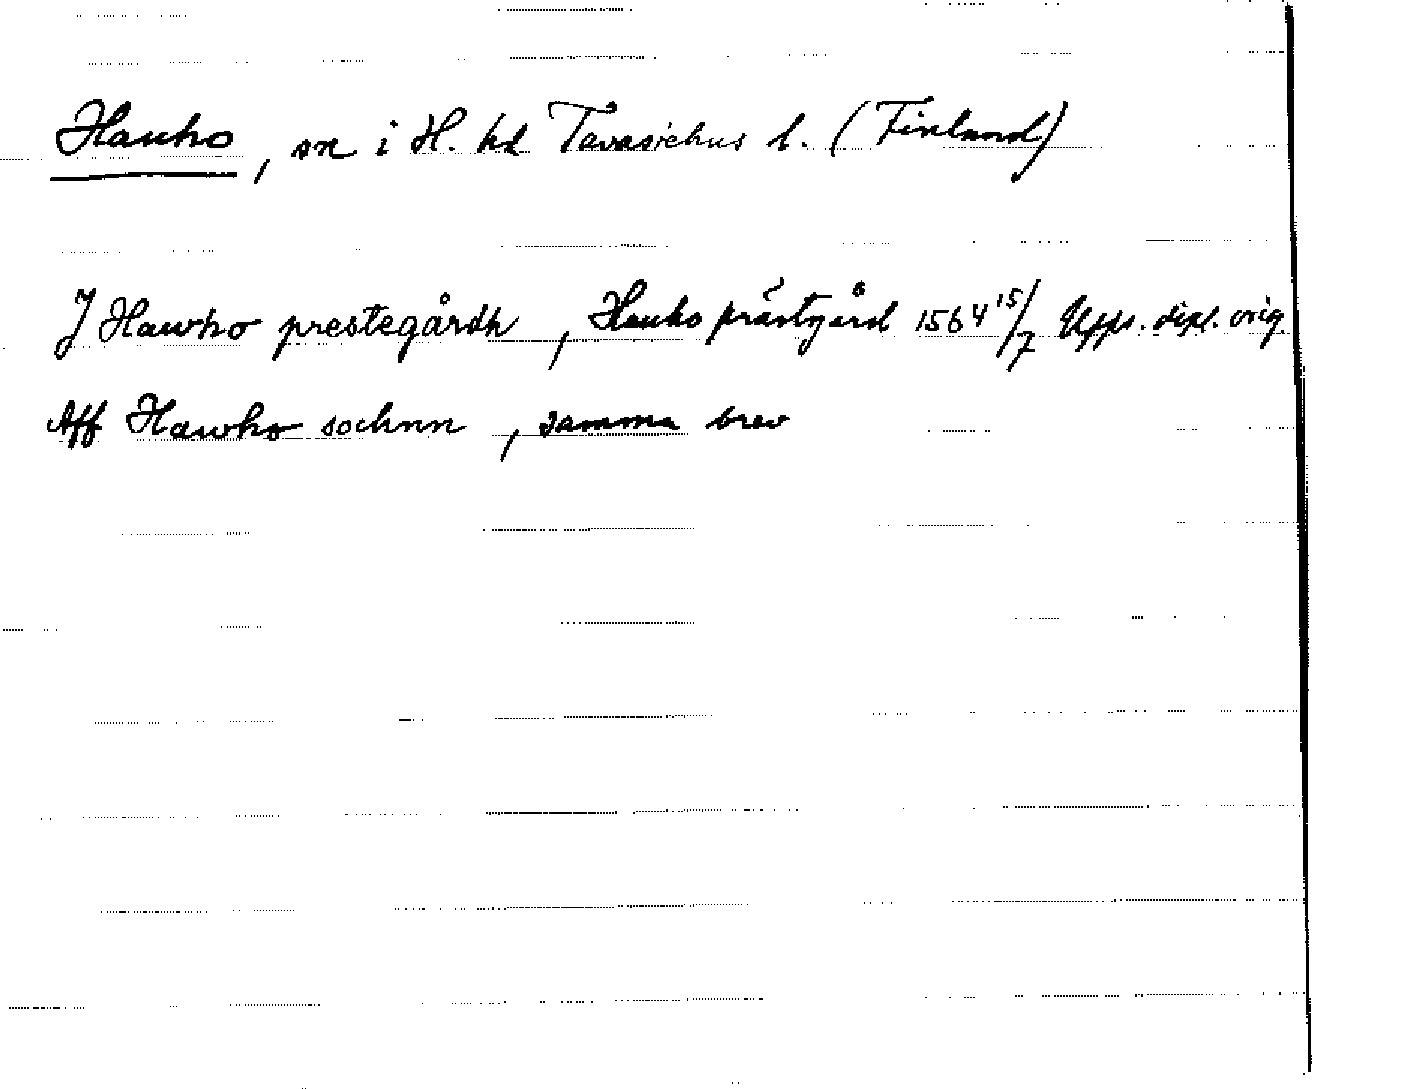 Hauho, sn i H. hd Tavastehus l. (Finland)
J Hawho prestegårdh, Hauho prästgård 1564 15/7 Upps. dipl. orig
Aff Hawho sochnn, samma brev